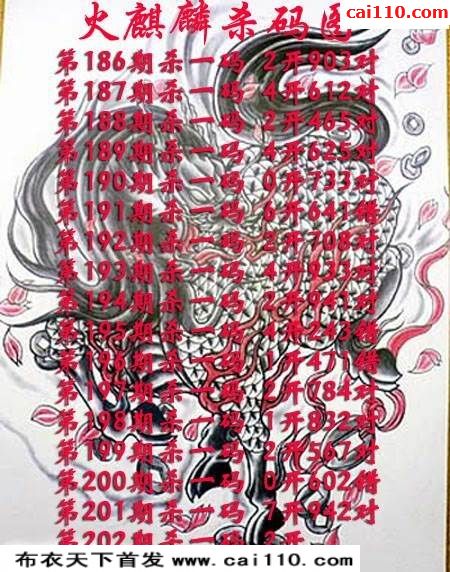 cai110.com
火麒麟杀码图
第186期杀一码 2开903对
第187期杀一码 4开612对
第188期杀一码 2开465对
第189期杀一码 4开625对
第190期杀一码 0开733对
第191期杀一码 6开641错
第192期杀一码 2开708对
第193期杀一码 4开933对
第194期杀一码 2开941对
第195期杀一码 4开243错
第196期杀一码 1开471错
第197期杀一码 2开784对
第198期杀一码 1开832对
第199期杀一码 2开567对
第200期杀一码 0开602错
第201期杀一码 7开942对
第202期杀一码 2开
布衣天下首发 www.cai110.com